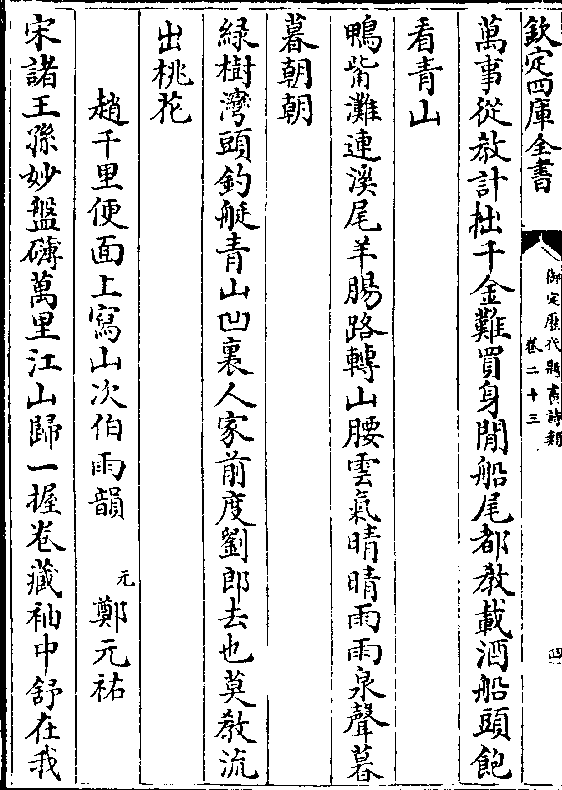 欽定四庫全書
御定歷代題畫詩類
卷二十三
四
萬事從教計拙千金難買身閒船尾都教載酒船頭飽
看青山
鴨觜灘連溪尾羊腸路轉山腰雲氣晴晴雨雨泉聲暮
暮朝朝
綠樹灣頭釣艇青山凹裏人家前度劉郎去也莫教流
出桃花
趙千里便面上寫山次伯雨韻
元
鄭元祐
宋諸王孫妙盤礴萬里江山歸一握卷藏袖中舒在我